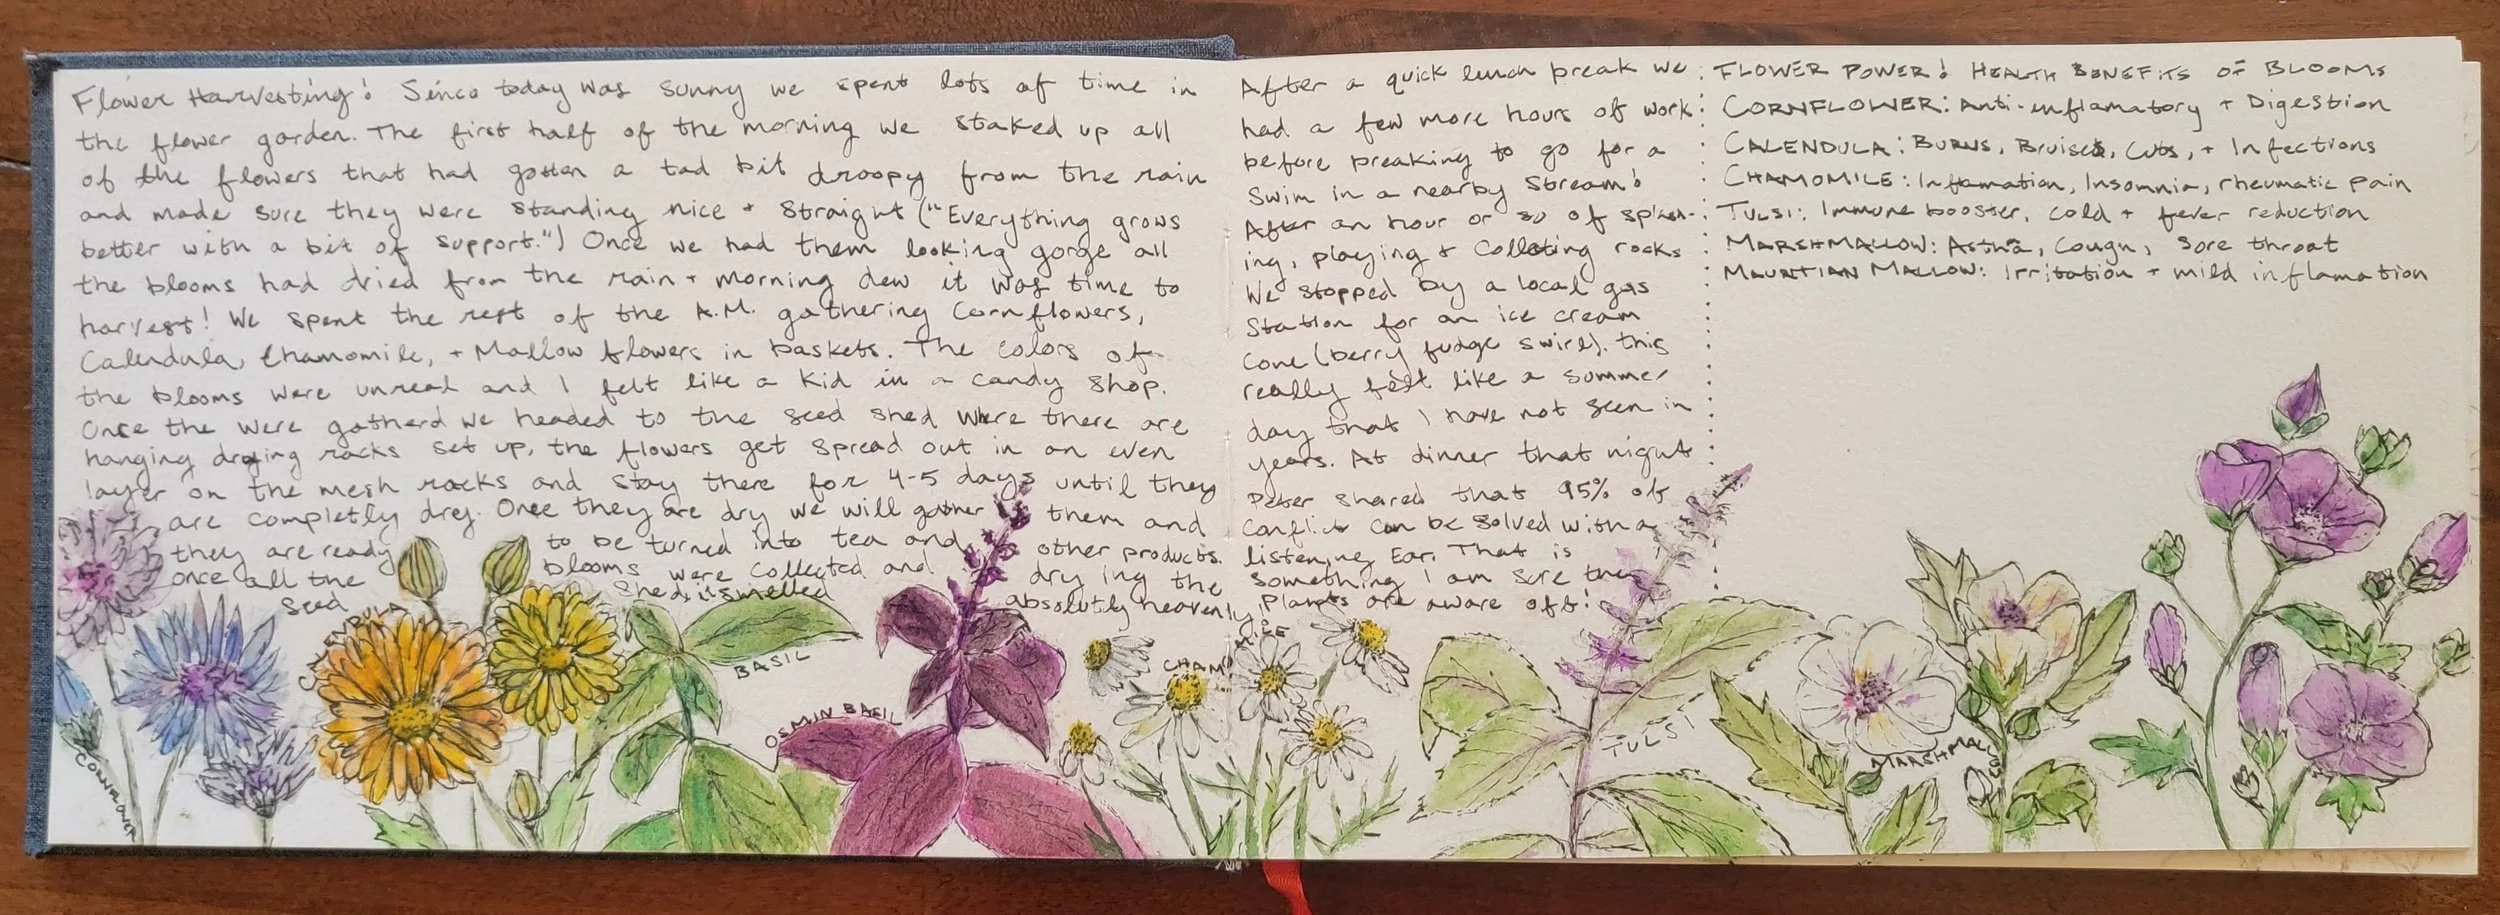 Flower Harvesting! Since today was sunny we spent lots of time in
the flower garden. The first half of the morning we staked up all
of the flowers that had gotten a tad bit droopy from the rain
and made sure they were standing nice + straight ("Everything grows
better with a bit of support.") Once we had them looking gorge all
the blooms had dried from the rain + morning dew it was time to
harvest! We spent the rest of the A.M. gathering Cornflowers,
Calendula, Chamomile, + Mallow flowers in baskets. The colors of
the blooms were unreal and I felt like a kid in a candy shop.
Once the were gatherd we headed to the seed shed where there are
hanging drying racks set up, the flowers get spread out in an even
layer on the mesh racks and stay there for 4-5 days until they
are completly drey. Once they are dry we will gather them and
they are ready to be turned into tea and other products.
once all the blooms were collected and drying the
seed shed, it smelled absolutly heavenly.
After a quick lunch break we
had a few more hours of work
before breaking to go for a
swim in a nearby stream!
After an hour or so of splash-
ing, playing + collecting rocks
We stopped by a local gas
station for an ice cream
cone (berry fudge swirl). this
really felt like a summer
day that I have not seen in
years. At dinner that night
Peter shared that 95% of
conflict can be solved with a
listening Ear. That is
something I am sure the
Plants are aware of!
FLOWER POWER! HEALTH BENEFITS OF BLOOMS
CORNFLOWER: Anti-inflamatory + Digestion
CALENDULA: BURNS, Bruises, Cuts, + Infections
CHAMOMILE: Inflamation, Insomnia, rheumatic pain
TULSI: Immune booster, cold + fever reduction
MARSHMALLOW: Astha, Cough, Sore throat
MAURITIAN MALLOW: Irritation + mild inflamation
CALENDULA
BASIL
OSMIN BASIL
TULSI
MARSHMALLOW